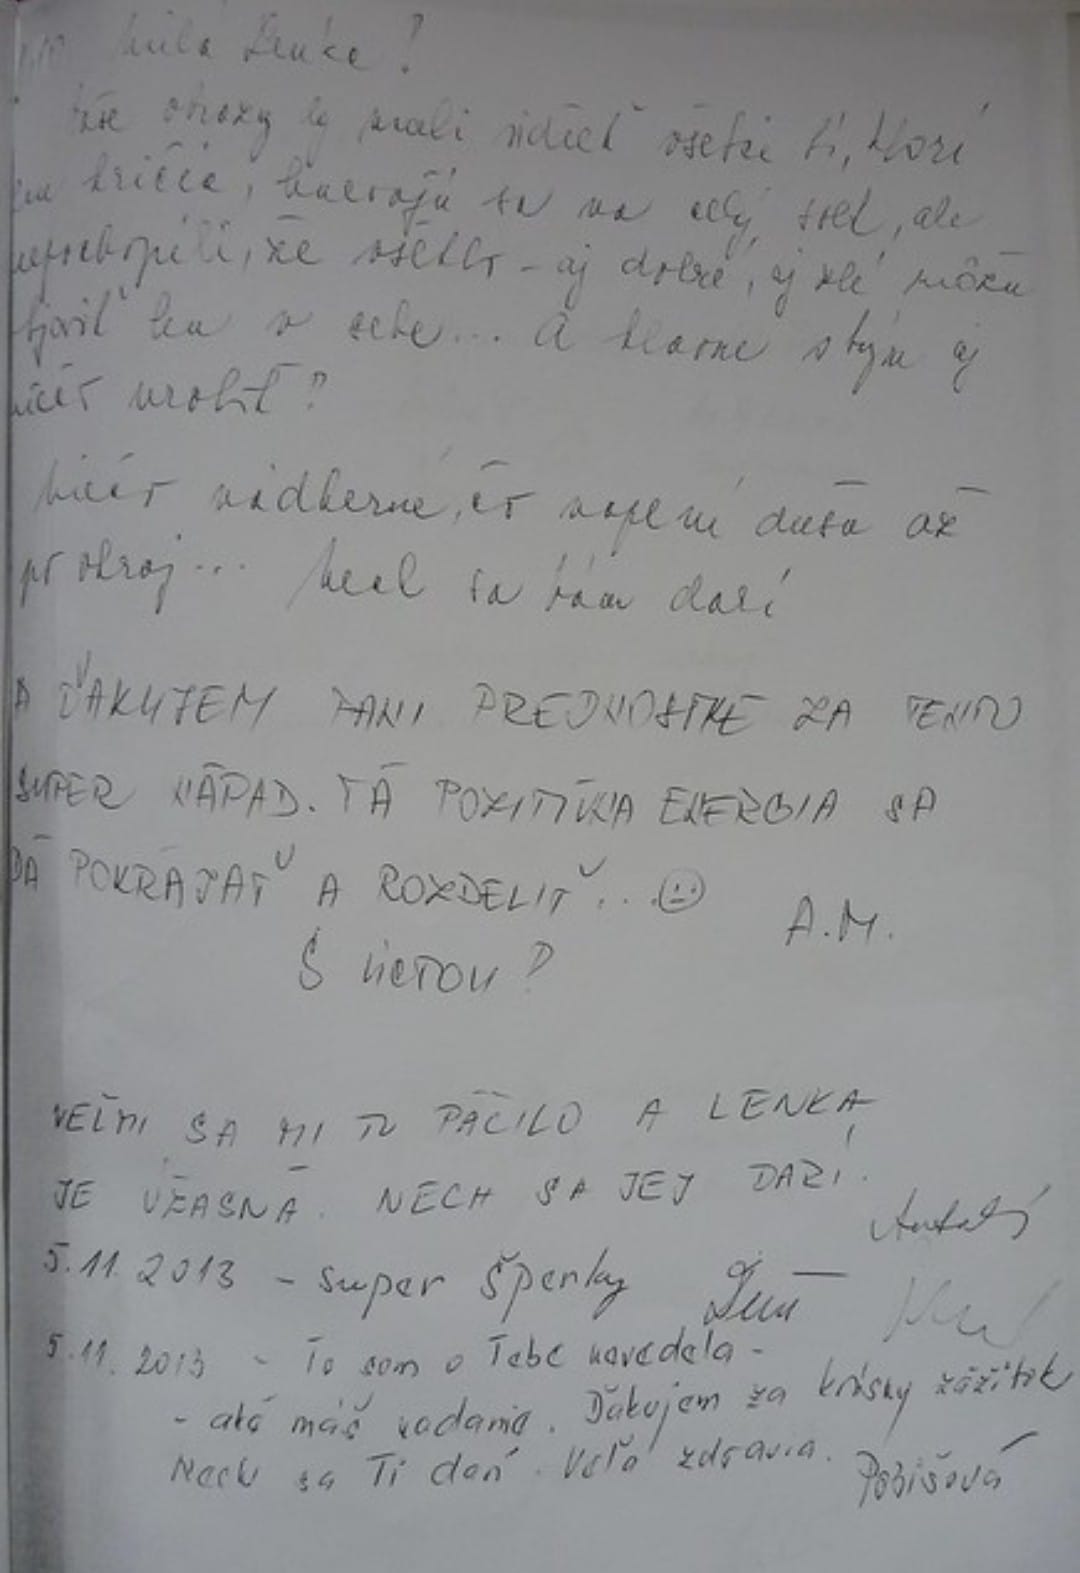 Milá Lenka!
Vaše obrazy by mali vidieť všetci tí, ktorí
len kričia, hnevajú sa na celý svet, ale
nepochopili, že všetko - aj dobré, aj zlé môžu
objaviť len v sebe... A hlavne s tým aj
niečo urobiť?
Niečo nádherné, čo naplní dušu až
po okraj... Nech sa Vám darí
A ĎAKUJEM PANI PREDNOSTKE ZA TENTO
SUPER NÁPAD. TÁ POZITÍVNA ENERGIA SA
DÁ POKRÁJAŤ A ROZDELIŤ... A.M.
S ÚCTOU?
VEĽMI SA MI TU PÁČILO A LENKA
JE ÚŽASNÁ. NECH SA JEJ DARÍ.
5.11.2013 - super šperky
5.11.2013 - To som o Tebe nevedela -
- aké máš nadanie. Ďakujem za krásny zážitok
Nech sa Ti darí. Veľa zdravia.